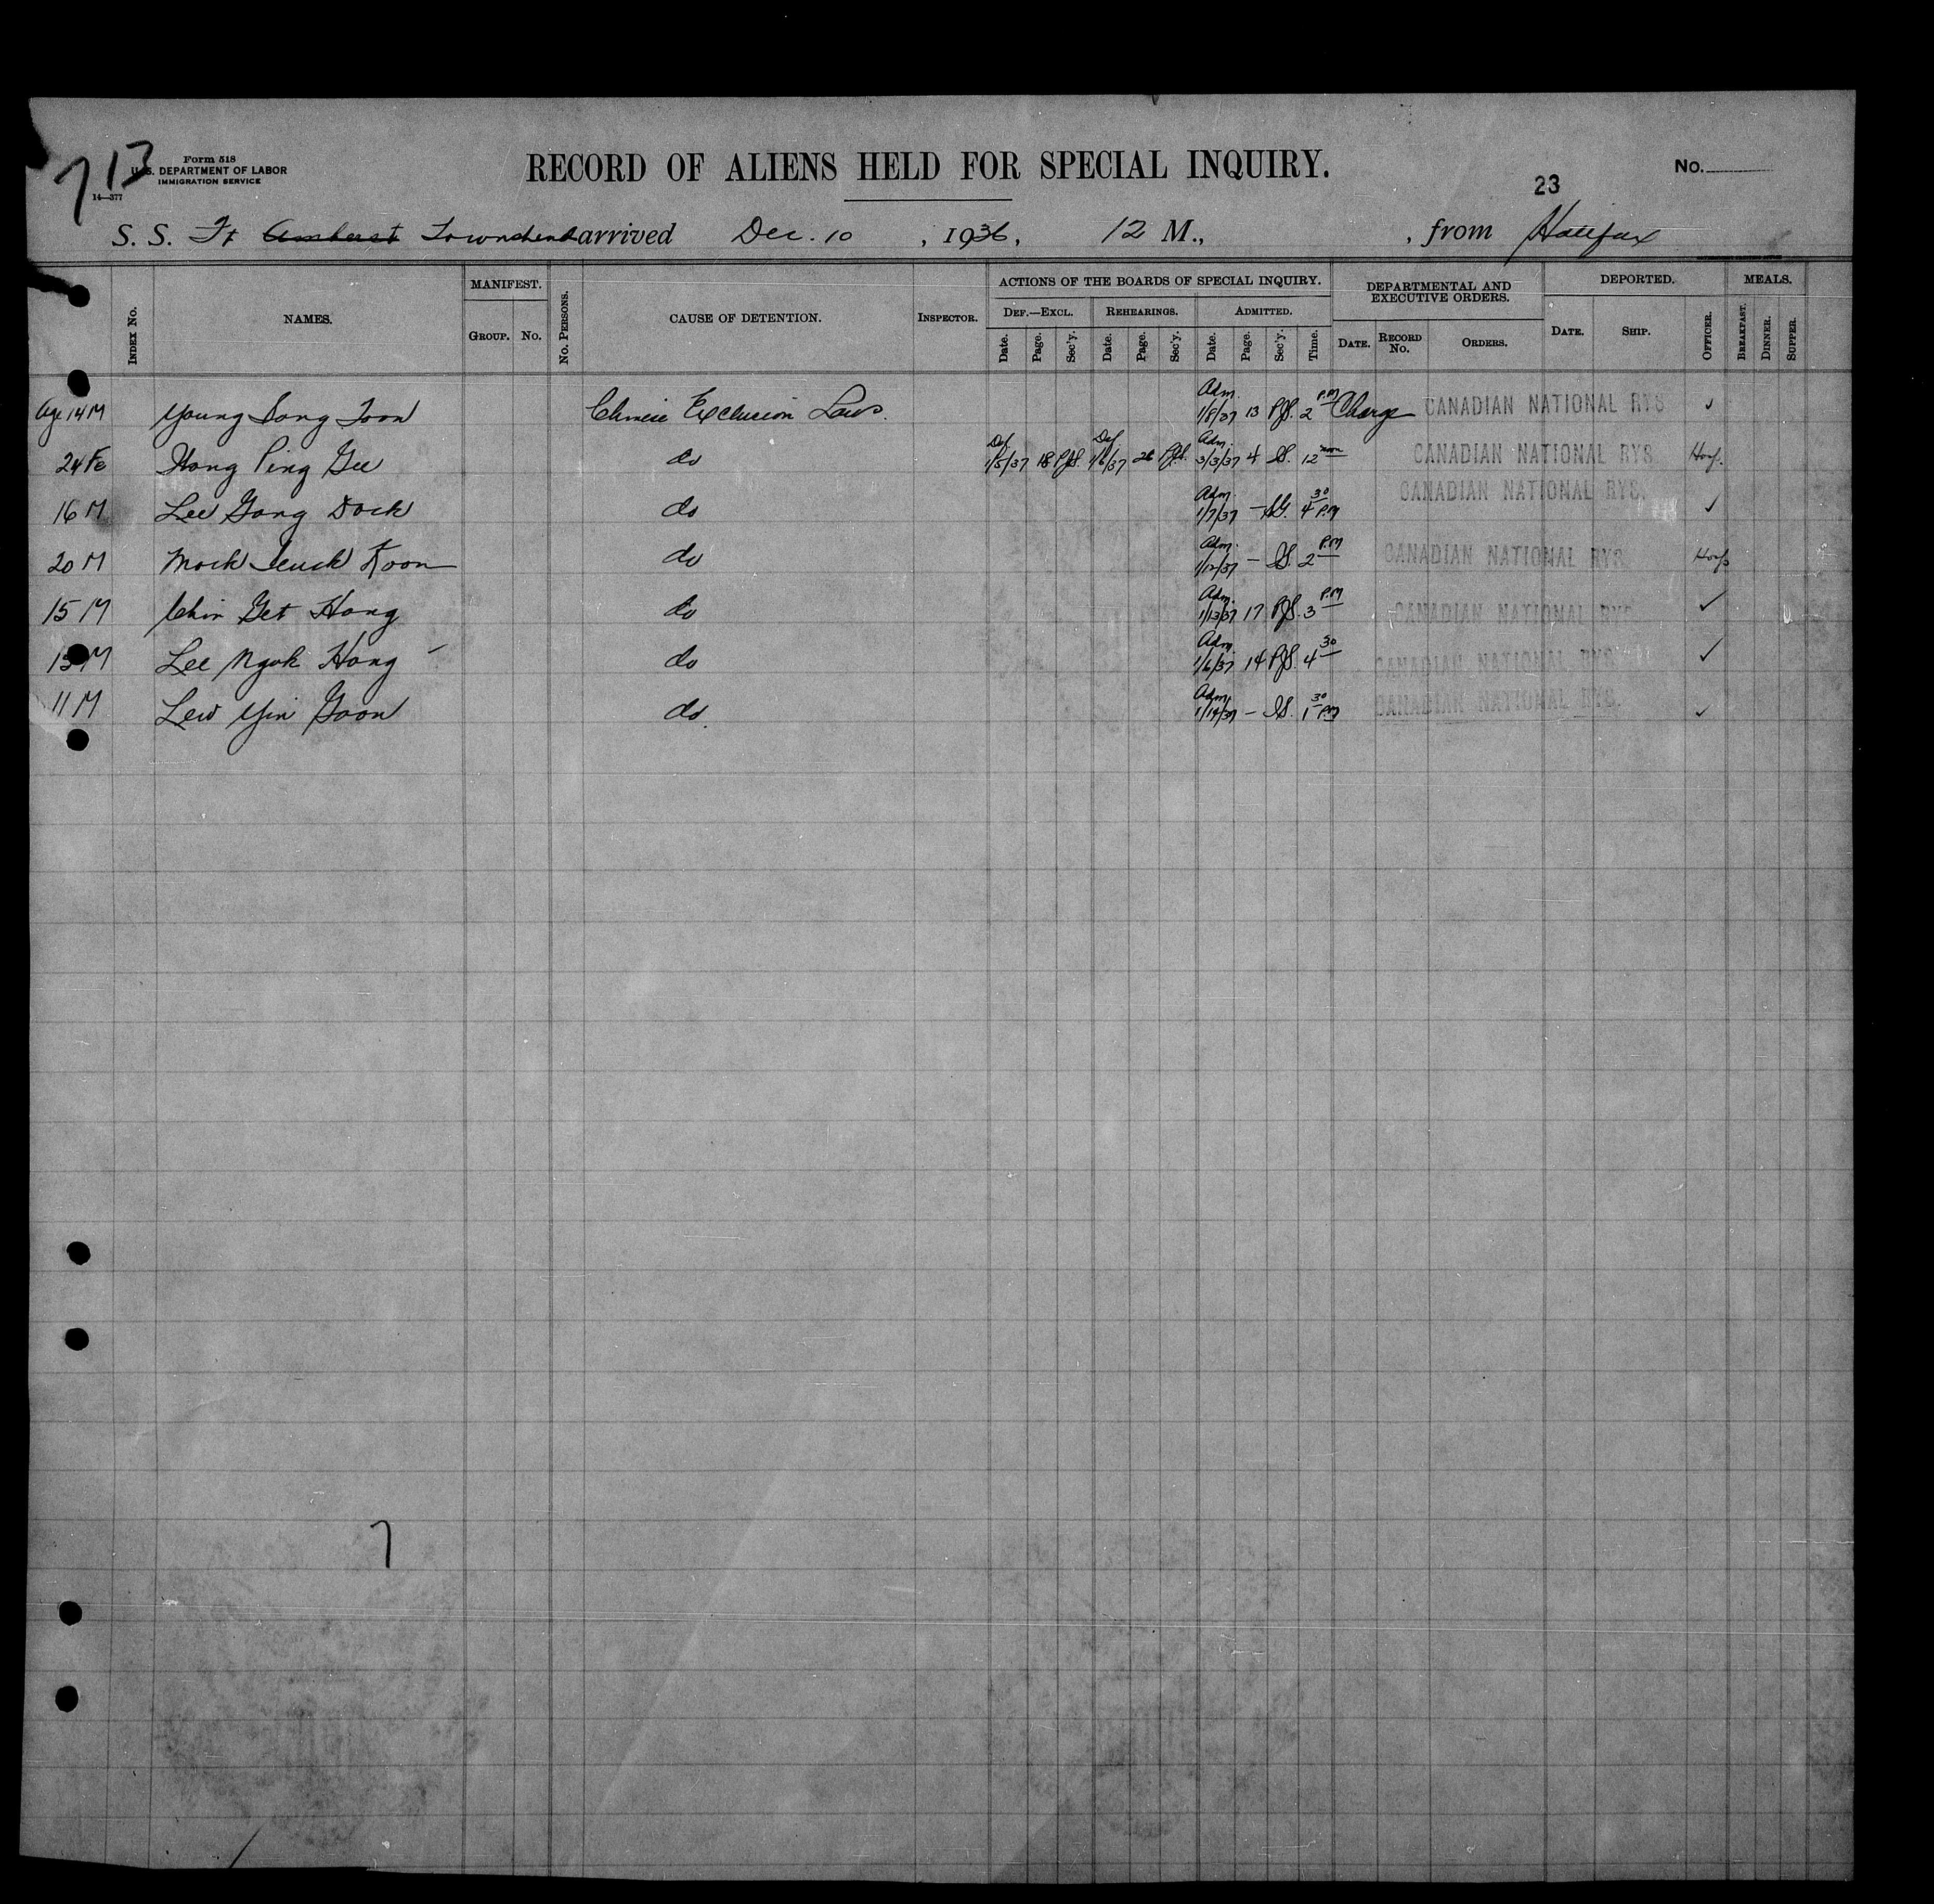 713
Form 518
U. S. DEPARTMENT OF LABOR
IMMIGRATION SERVICE
14—377
RECORD OF ALIENS HELD FOR SPECIAL INQUIRY.
23
No.
S. S. Ft Amherst Townshend arrived Dec. 10, 1936, 12 M., , from Halifax
INDEX No. NAMES. MANIFEST. GROUP. No. No. PERSONS. CAUSE OF DETENTION. INSPECTOR. ACTIONS OF THE BOARDS OF SPECIAL INQUIRY. DEF.—EXCL. Date. Page. Sec'y. REHEARINGS. Date. Page. Sec'y. ADMITTED. Date. Page. Sec'y. Time. DEPARTMENTAL AND EXECUTIVE ORDERS. DATE. RECORD No. ORDERS. DEPORTED. DATE. SHIP. OFFICER. MEALS. BREAKFAST. DINNER. SUPPER.
Age 14 M Young Dong Toon Chinese Exclusion Laws. Adm. 1/8/37 13 PJS. 2 PM Charge CANADIAN NATIONAL RYS
24 Fe Hong Ping Gee do Def 1/5/37 18 PJS. Def 1/6/37 26 PJS. Adm. 3/3/37 4 IS. 12 noon CANADIAN NATIONAL RYS
16 M Lee Gong Dock do Adm. 1/7/37 — 4 30 P.M CANADIAN NATIONAL RYS.
20 M Mock Seuck Koon do Adm. 1/12/37 — IS. 2 P.M CANADIAN NATIONAL RYS
15 M Chin Get Hong do Adm. 1/13/37 17 PJS. 3 P.M CANADIAN NATIONAL RYS
13 M Lee Ngok Hong do Adm. 1/6/37 14 PJS. 4 30 CANADIAN NATIONAL RYS
11 M Lew Yin Goon do. Adm. 1/14/37 — IS. 1 30 PM CANADIAN NATIONAL RYS.
7